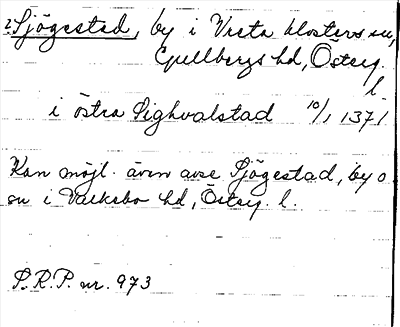 2. Sjögestad, by i Vreta klosters sn,
Gullbergs hd, Österg.
l.
i östra Sighvalstad 10/1 1371
Kan möjl. även avse Sjögestad, by o
sn i Valkebo hd, Österg. l.
S.R.P. nr. 973